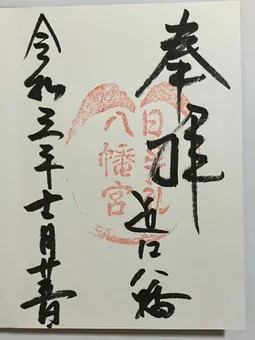 奉拝
近江八幡
日牟礼
八幡宮
令和三年十一月廿日